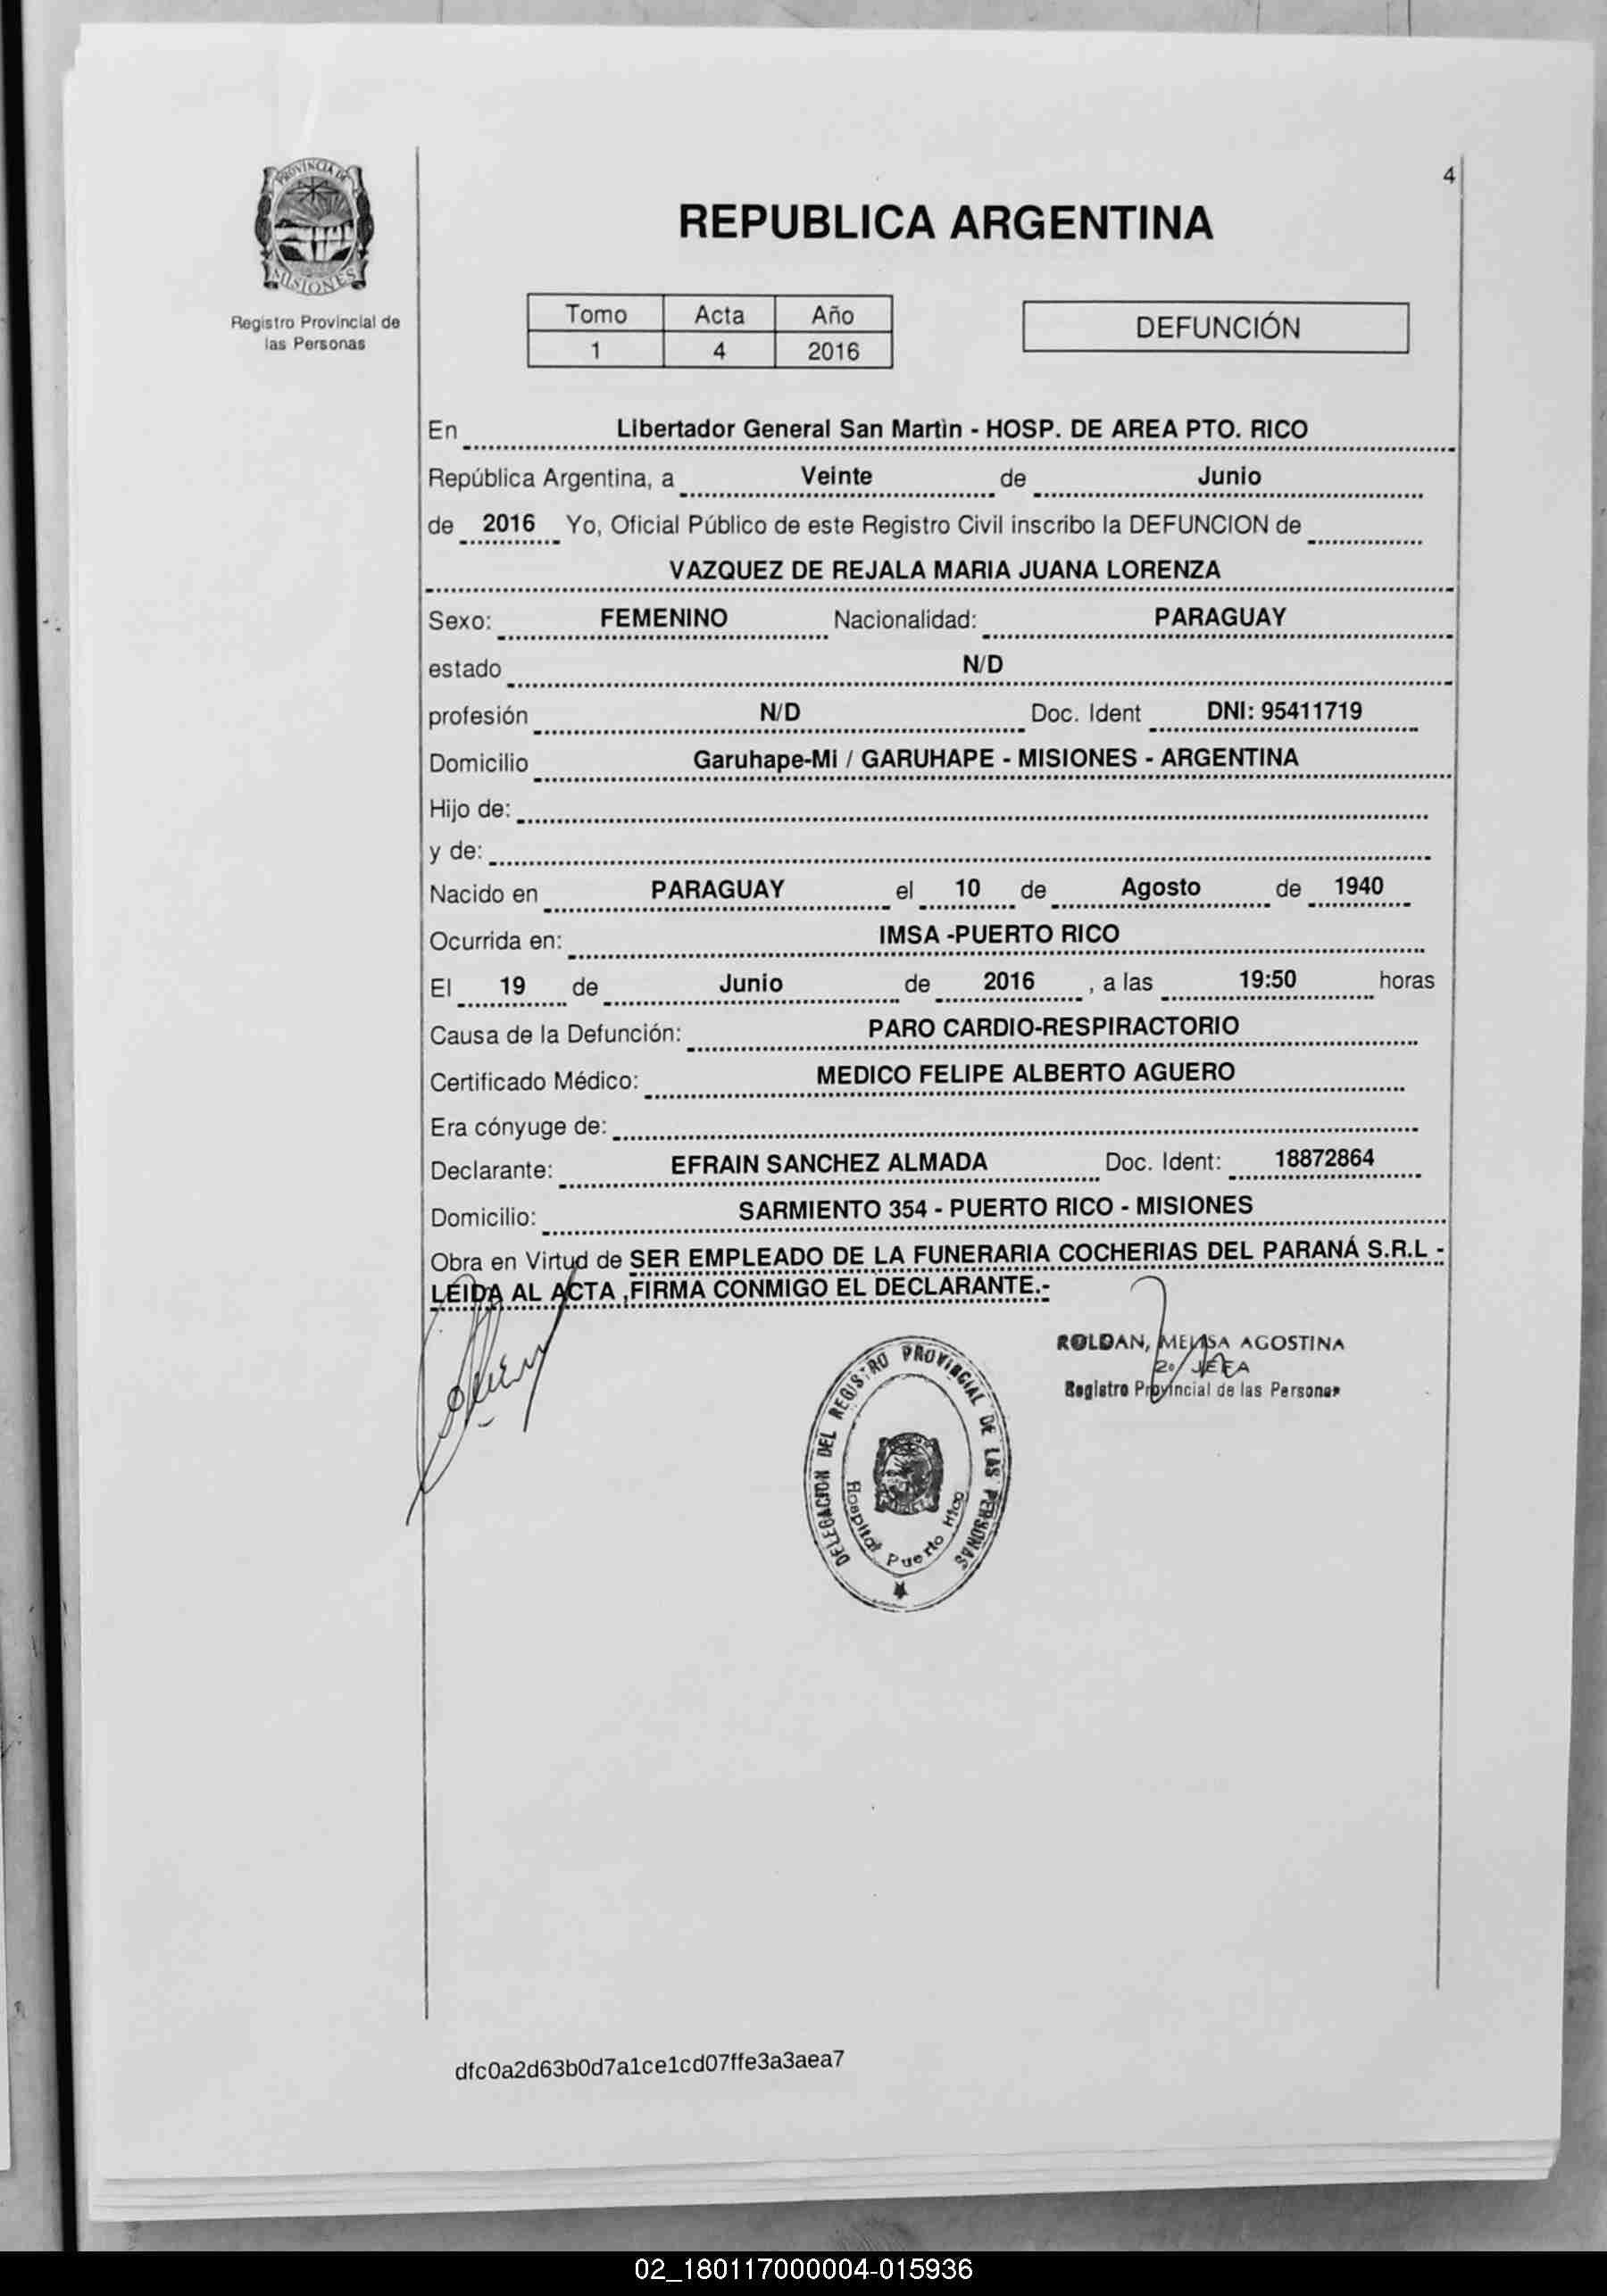 4
PROVINCIA DE
MISIONES
Registro Provincial de
las Personas
REPUBLICA ARGENTINA
Tomo Acta Año
1 4 2016
DEFUNCIÓN
En Libertador General San Martin - HOSP. DE AREA PTO. RICO
República Argentina, a Veinte de Junio
de 2016 Yo, Oficial Público de este Registro Civil inscribo la DEFUNCION de
VAZQUEZ DE REJALA MARIA JUANA LORENZA
Sexo: FEMENINO Nacionalidad: PARAGUAY
estado N/D
profesión N/D Doc. Ident DNI: 95411719
Domicilio Garuhape-Mi / GARUHAPE - MISIONES - ARGENTINA
Hijo de:
y de:
Nacido en PARAGUAY el 10 de Agosto de 1940
Ocurrida en: IMSA -PUERTO RICO
El 19 de Junio de 2016 , a las 19:50 horas
Causa de la Defunción: PARO CARDIO-RESPIRACTORIO
Certificado Médico: MEDICO FELIPE ALBERTO AGUERO
Era cónyuge de:
Declarante: EFRAIN SANCHEZ ALMADA Doc. Ident: 18872864
Domicilio: SARMIENTO 354 - PUERTO RICO - MISIONES
Obra en Virtud de SER EMPLEADO DE LA FUNERARIA COCHERIAS DEL PARANÁ S.R.L -
LEIDA AL ACTA ,FIRMA CONMIGO EL DECLARANTE.-
ROLDAN, MELISA AGOSTINA
2º JEFA
Registro Provincial de las Personas
DELEGACION DEL REGISTRO PROVINCIAL DE LAS PERSONAS
Hospital Puerto Rico
dfc0a2d63b0d7a1ce1cd07ffe3a3aea7
02_180117000004-015936